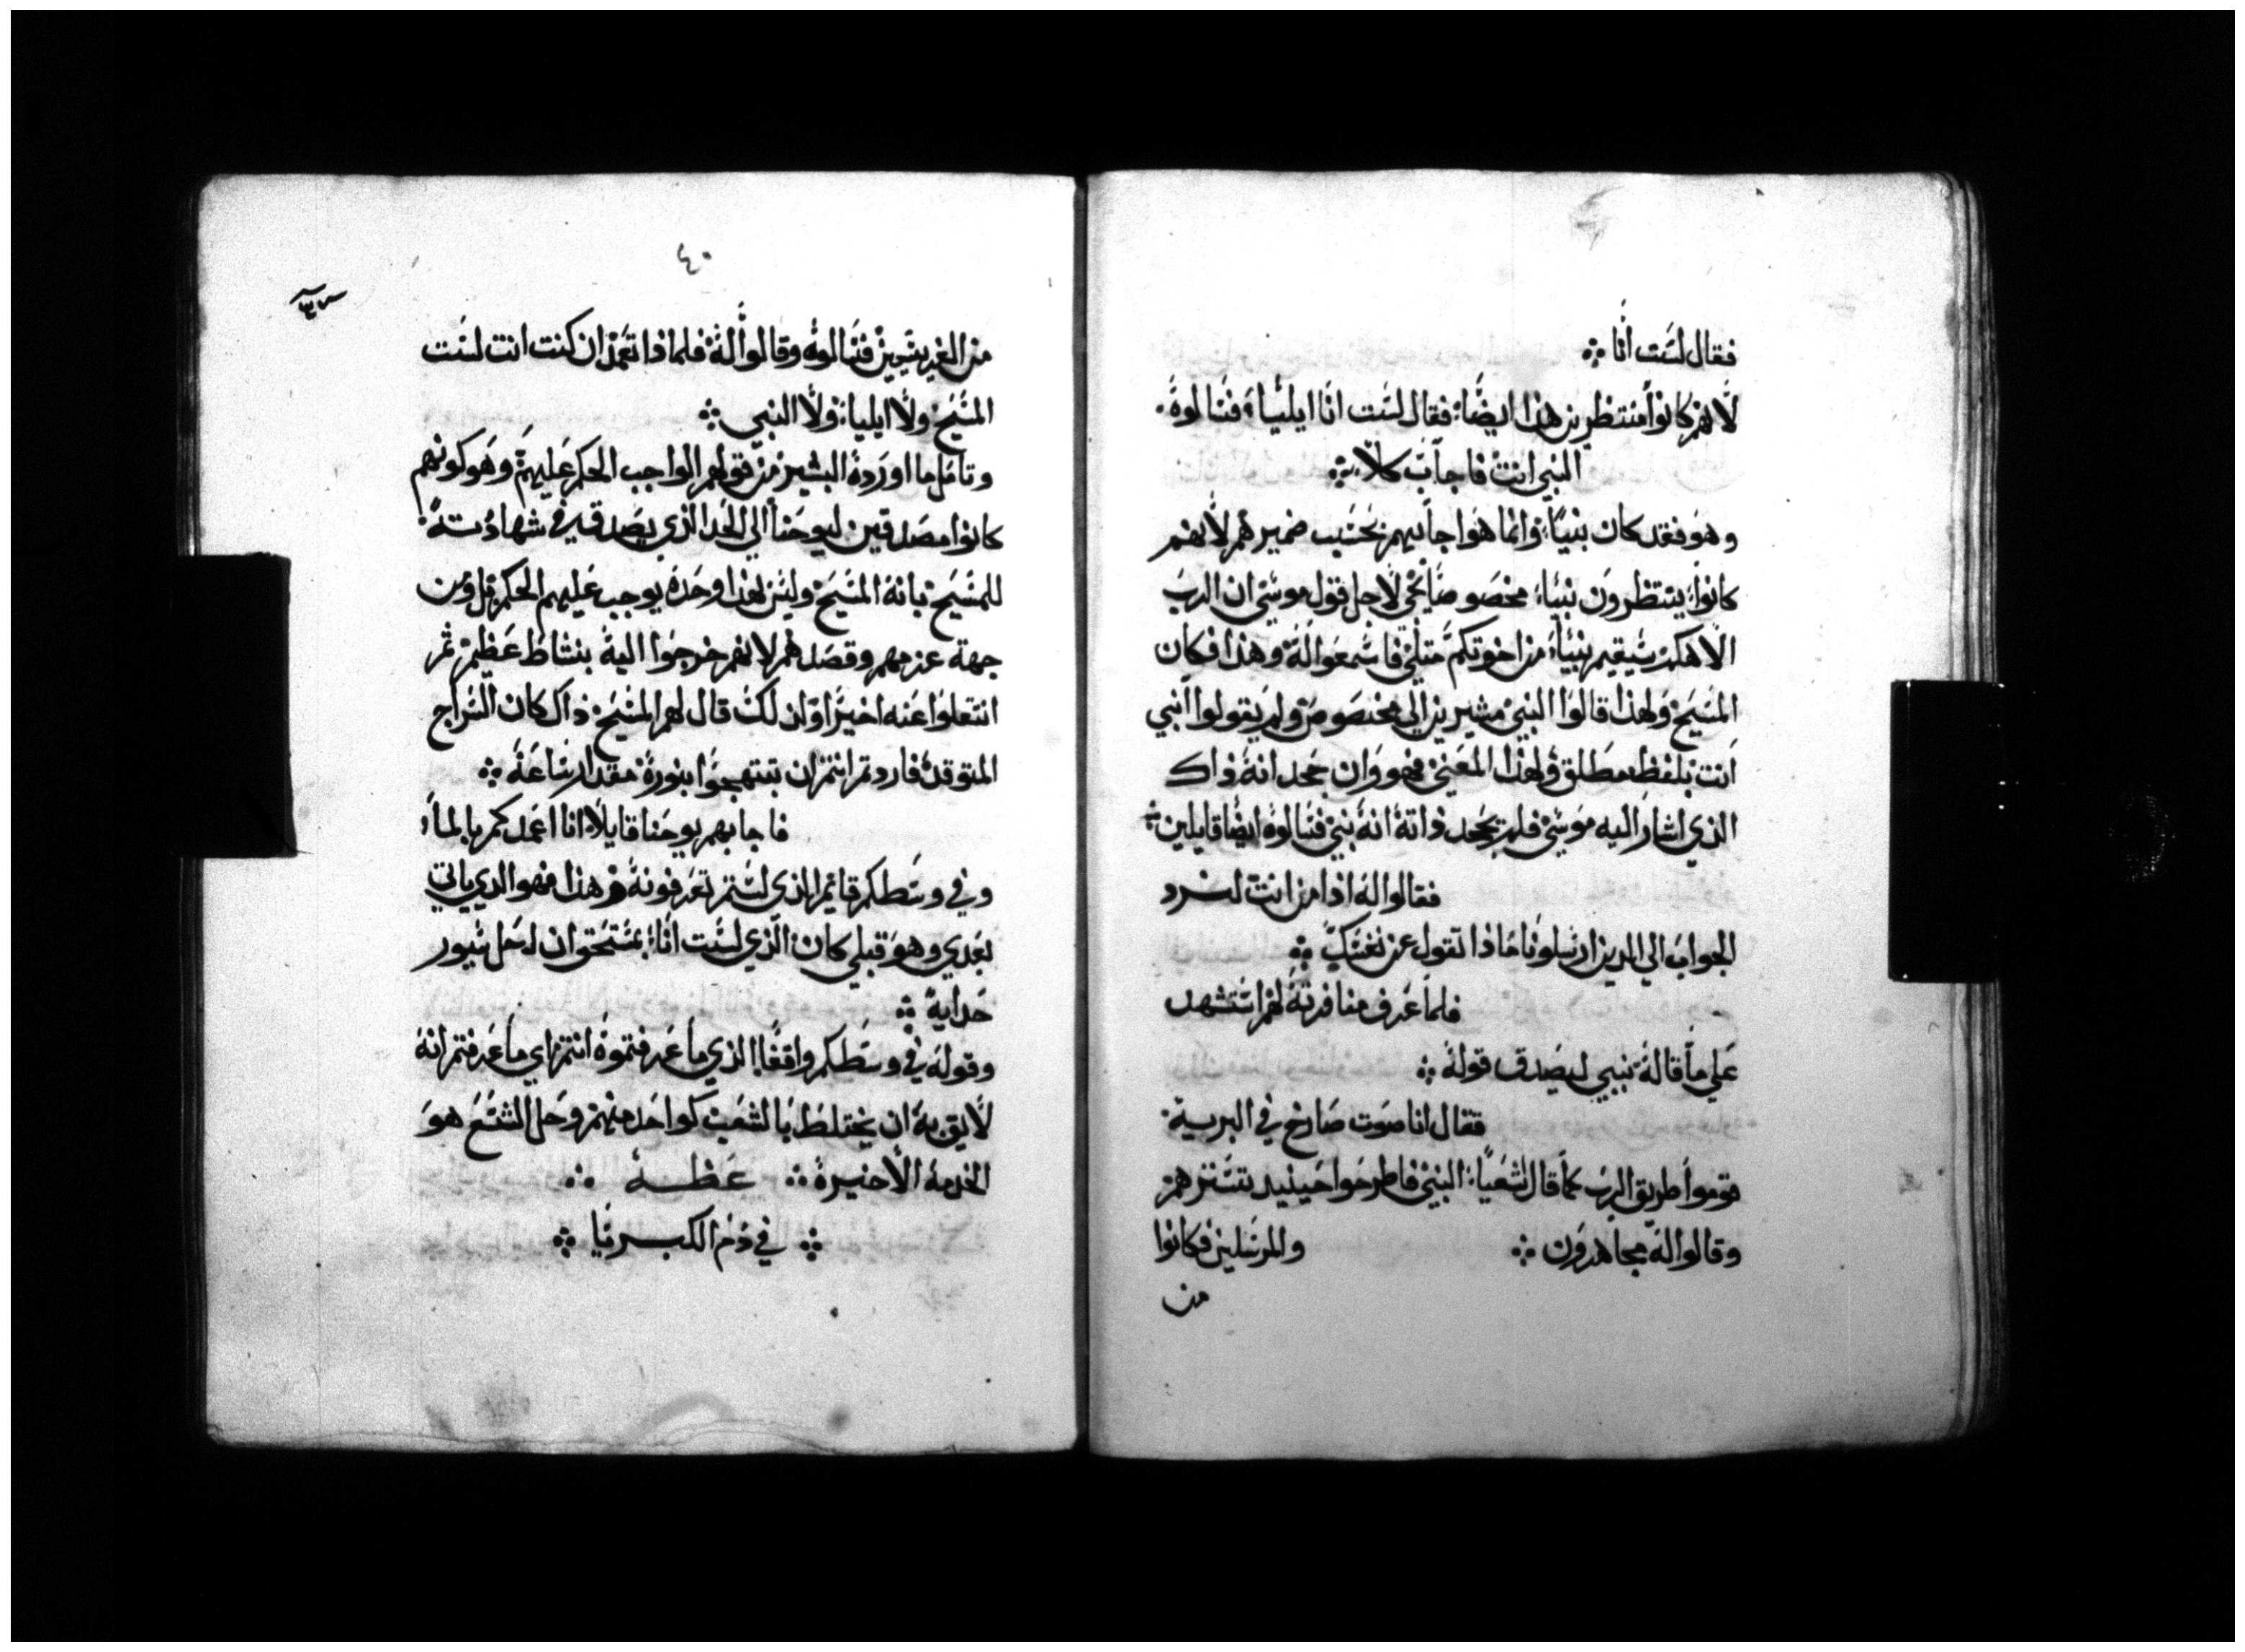 فقال لست أنا ⁘
لأنهم كانوا منتظرين هذا ايضًا؛ فقال لست انا ايلياء فسالوه
النبي انت فاجاب كلاّ ⁘
وهو فقد كان نبيًا؛ وانما هو اجابهم بحسب ضميرهم لأنهم
كانوا ينتظرون نبيًا؛ مخصوصًا يجي لأجل قول موسي ان الرب
الاهكم سيقيم نبيًا من اخوتكم مثلي فاسمعوا له وهذا فكان
المسيح ولهذا قالوا النبي مشيرين الي مخصوص ولم يقولوا انبي
انت بلفظ مطلق ولهذا المعني فهو وان جحد انه ذاك
الذي اشار اليه موسي فلم يجحد ذاته انه نبي فسالوه ايضًا قايلين ⁘
فقالوا له اذا من انت لنرد
الجواب الي الذين ارسلونا ماذا تقول عن نفسك ⁘
فلما عرف منافرته لهم استشهد
علي ما قاله بنبي ليصدق قوله ⁘
فقال انا صوت صارخ في البرية
قوموا طريق الرب كما قال اشعيا النبي فاطرحوا حينيد تسترهم
وقالوا له مجاهرون ⁘ والمرسلين فكانوا
من
٤٠
من الفريسيين فسالوه وقالوا له فلماذا تعمد ان كنت انت لست
المسيح ولا ايليا ولا النبي ⁘
وتامل ما اورده البشير من قولهم الواجب الحكم عليهم وهو كونهم
كانوا مصدقين ليوحنا الي الحد الذي يصدق في شهادته
للمسيح بانه المسيح وليس هذا وحده يوجب عليهم الحكم بل ومن
جهة عزمهم وقصدهم لانهم خرجوا اليه بنشاط عظيم ثم
انتقلوا عنه اخيرًا ولذلك قال لهم المسيح ذاك كان السراج
المتوقد فاردتم انتم ان تبتهجوا بنوره مقدار ساعة ⁘
فاجابهم يوحنا قايلاً انا اعمدكم بالماء
وفي وسطكم قايم الذي لستم تعرفونه وهذا فهو الذي ياتي
بعدي وهو قبلي كان الذي لست انا بمستحق ان احل سيور
حدايه ⁘
وقوله في وسطكم واقفًا الذي ما عرفتموه انتم اي ما عرفتم انه
لايق به ان يختلط بالشعب كواحد منهم وحل الشسع هو
الخدمة الأخيرة ⁘ عظـــة ⁘
⁘ في ذم الكبريا ⁘